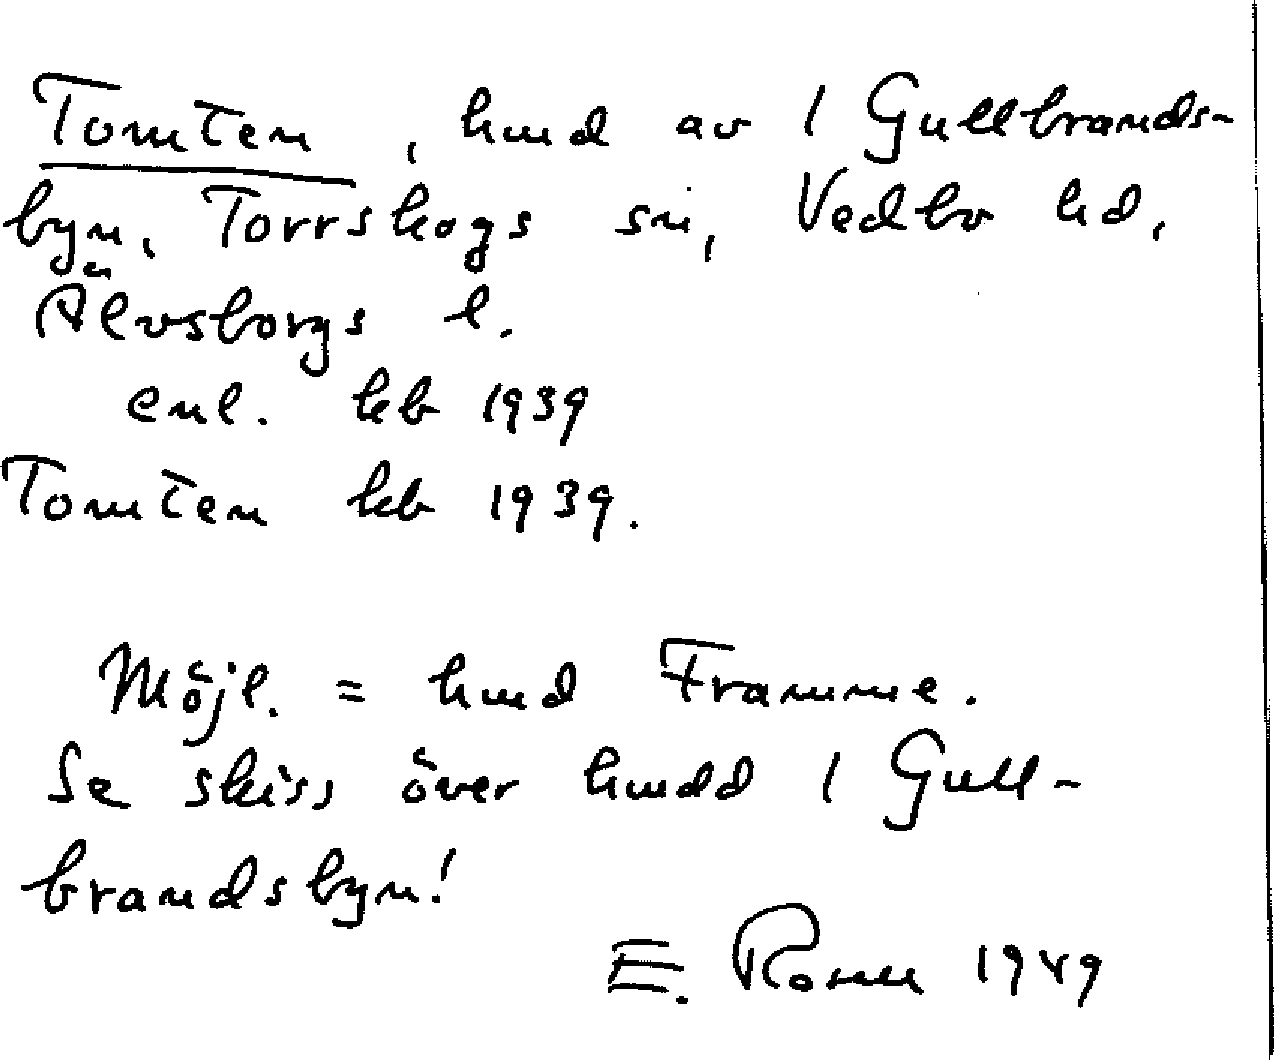 Tomten, hmd av 1 Gullbrands-
byn, Torrskogs sn, Vedbo hd,
Älvsborgs l.
enl. kb 1939
Tomten kb 1939.
Möjl. = hmd Framme.
Se skiss över hmdd 1 Gull-
brandsbyn!
E. Rosell 1949